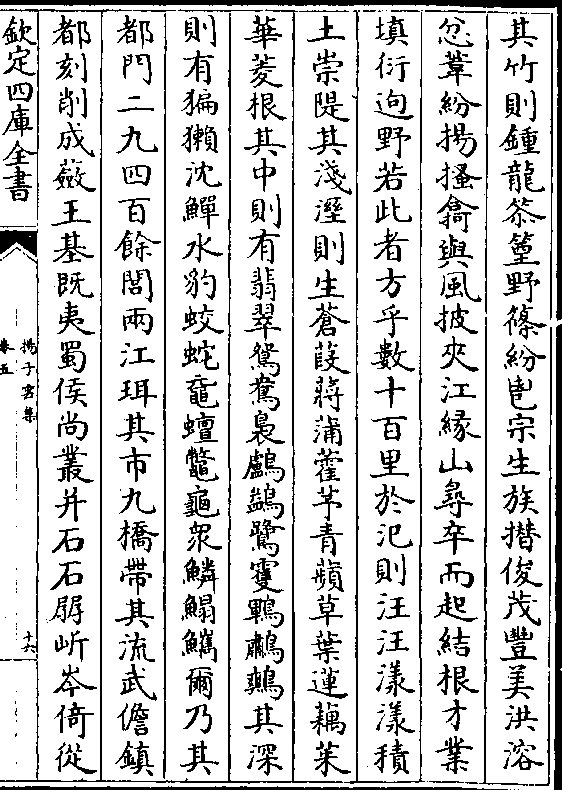 其竹則鍾龍䈽䔖野篠紛鬯宗生族攢俊茂豐美洪溶
忿葦紛揚搔翕與風披夾江緣山尋卒而起結根才業
填衍迥野若此者方乎數十百里於汜則汪汪漾漾積
土崇隄其淺溼則生蒼葭蔣蒲藿芧青蘋草葉蓮藕茱
華菱根其中則有翡翠鴛鴦裊鸕鷁鷺䨥鶤鷫鷞其深
則有猵獺沈鱓水豹蛟蛇黿蟺鼈龜衆鱗鰨䲛爾乃其
都門二九四百餘閭兩江珥其市九橋帶其流武儋鎮
都刻削成蘞王基既夷蜀侯尚叢并石石㞕𡵆岑倚從
欽定四庫全書
揚子雲集
卷五
十六